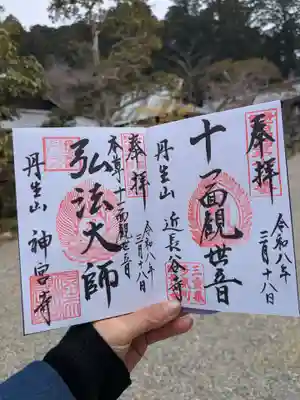 奉拝
十一面観世音
丹生山 近長谷寺
令和八年
三月十八日
三重県
奉拝
本尊十一面観世音
弘法大師
丹生山 神宮寺
令和八年
三月八日